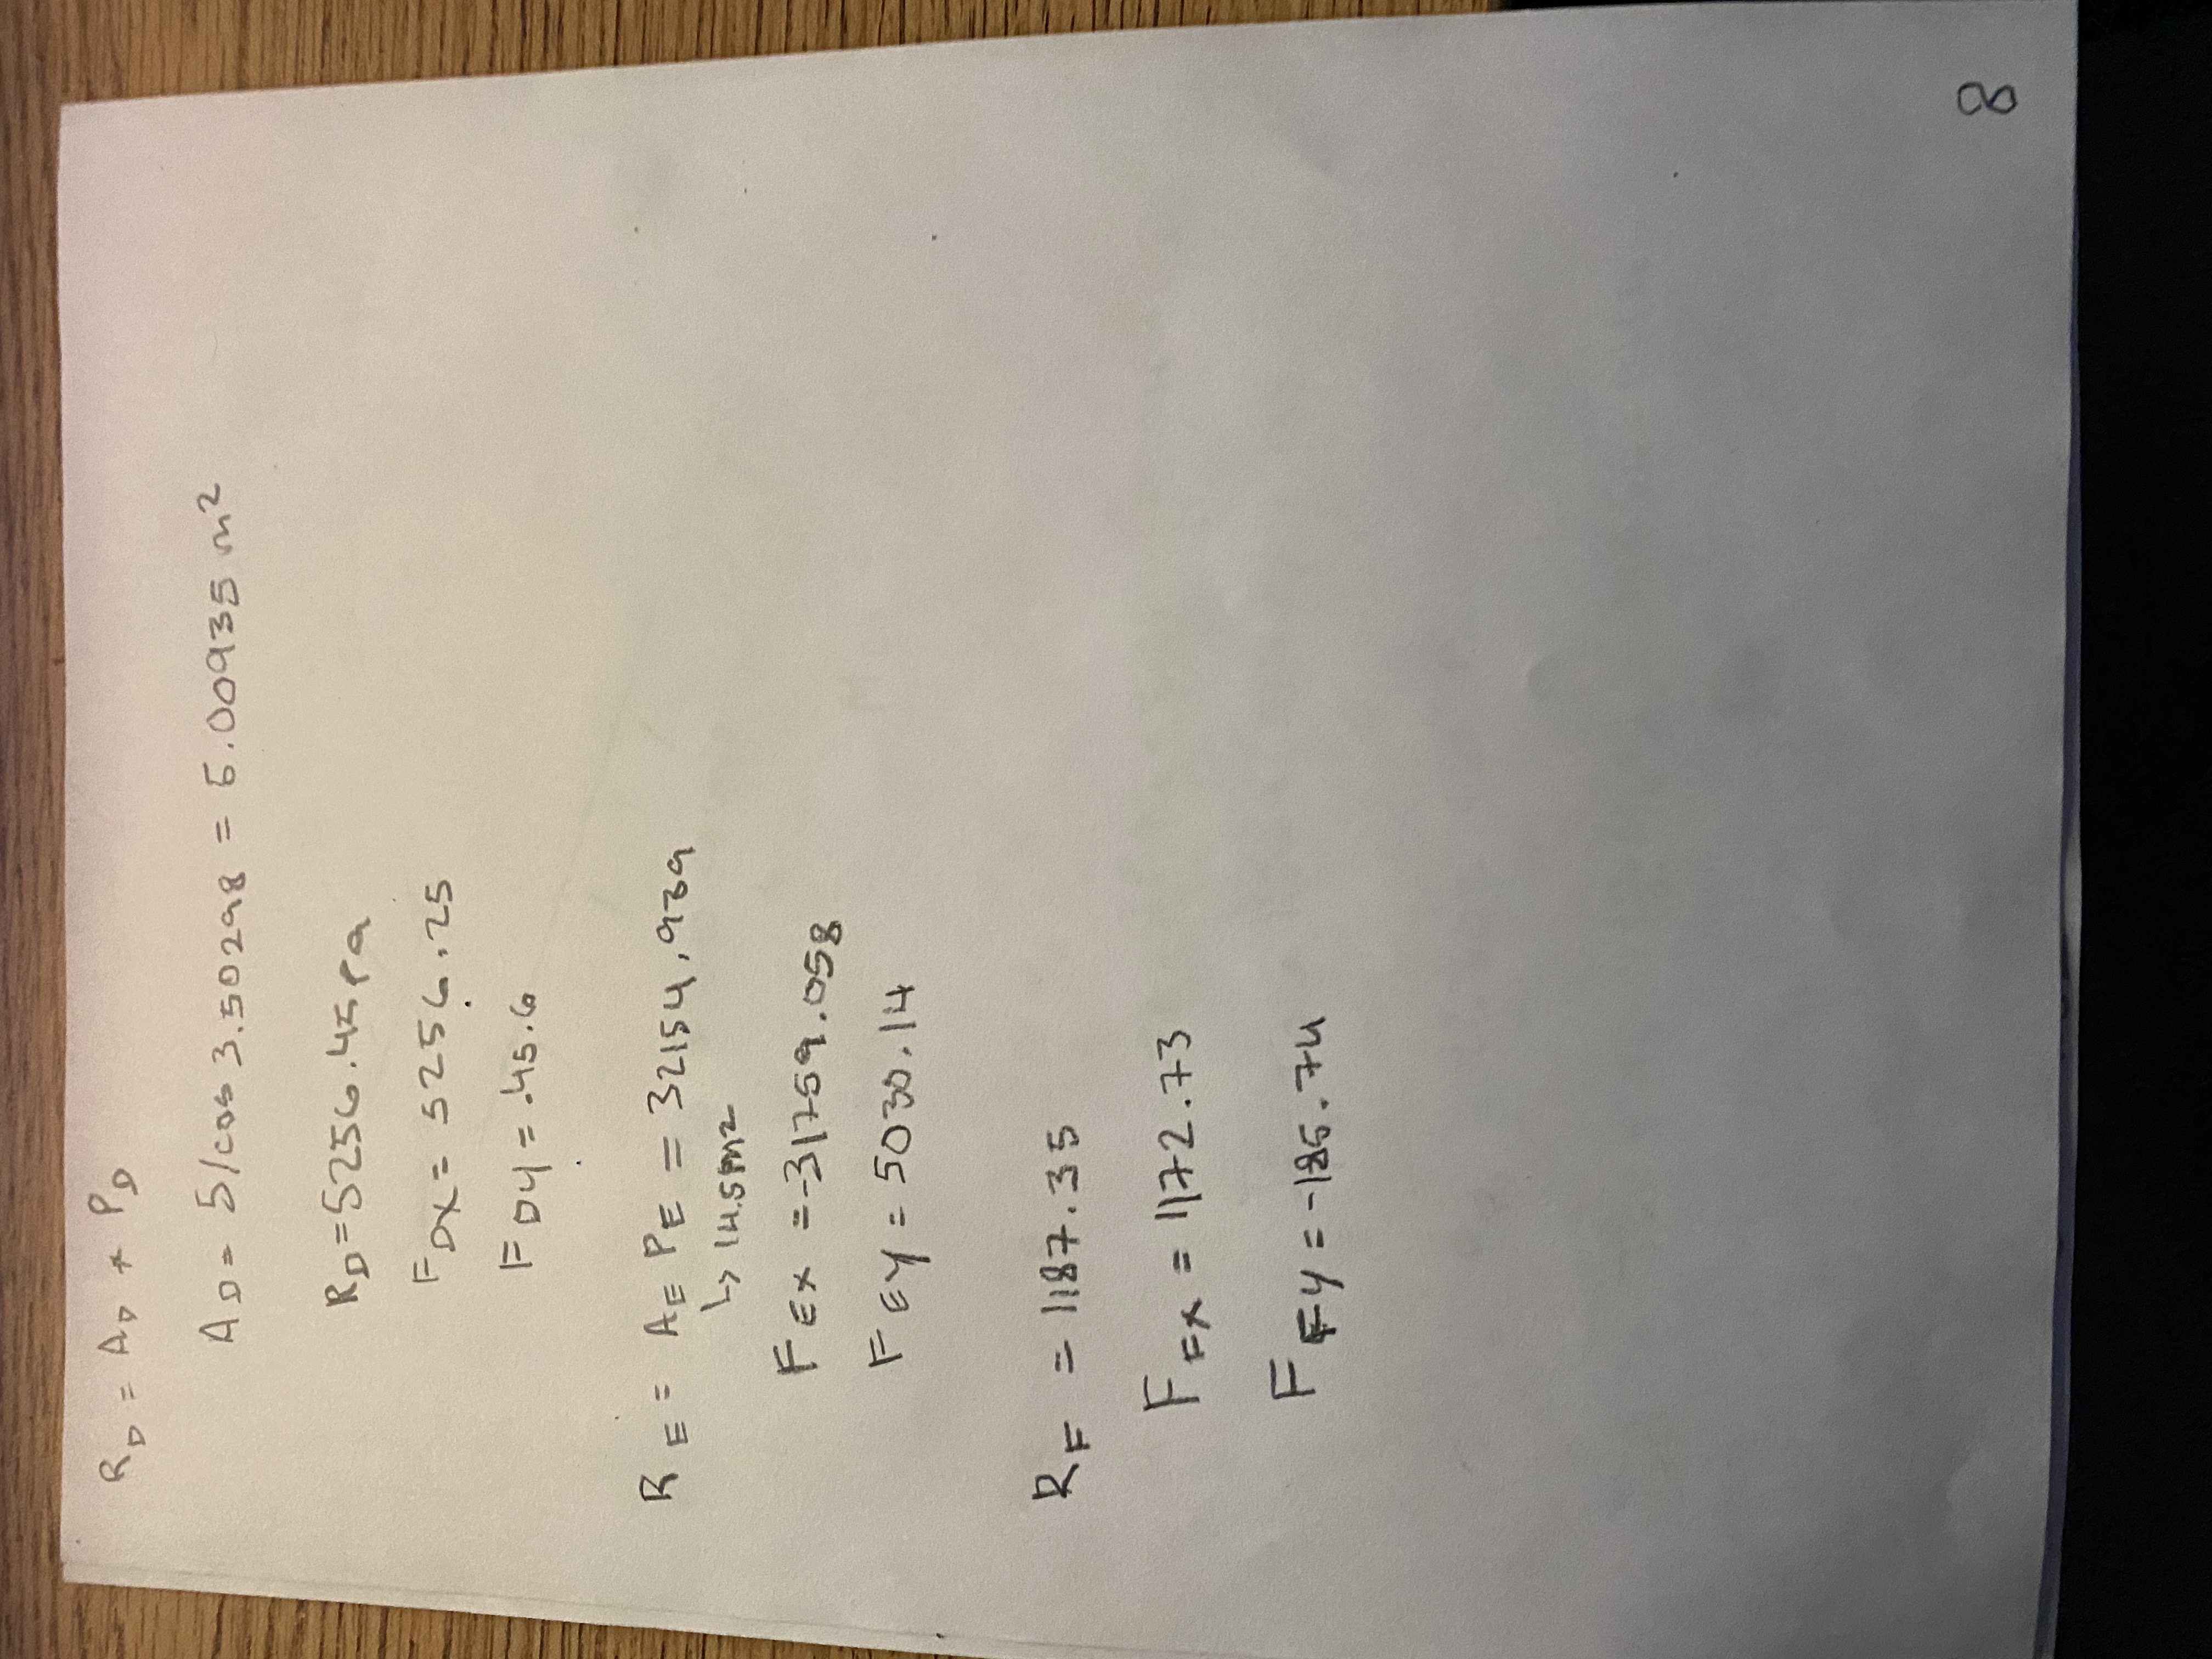 R_D = A_D * P_D
A_D = 5/cos 3.50298 = 5.00935 m²
R_D = 5256.45 Pa
F_DX = 5256.25
F_DY = .45.6
R_E = A_E P_E = 32154.939
↳ 14.5m²
F_EX = -31759.058
F_EY = 5030.14
R_F = 1187.35
F_FX = 1172.73
F_FY = -185.74
8